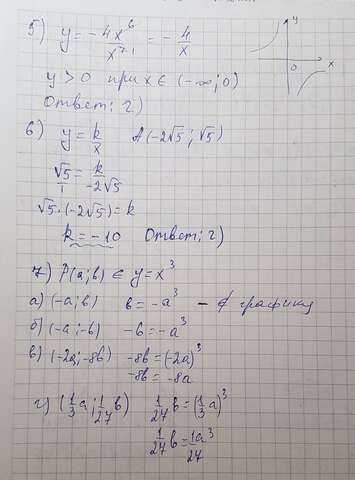 5) y = -4x⁶/x⁷·¹ = -4/x
y
0
x
y > 0 при x ∈ (-∞; 0)
Ответ: 2)
6) y = k/x A(-2√5; √5)
√5/1 = k/-2√5
√5·(-2√5) = k
k = -10 Ответ: 2)
7) P(a; b) ∈ y = x³
а) (-a; b) b = -a³ - ∉ графику
б) (-a; -b) -b = -a³
в) (-2a; -8b) -8b = (-2a)³
-8b = -8a
г) (1/3 a; 1/27 b) 1/27 b = (1/3 a)³
1/27 b = 1a³/27